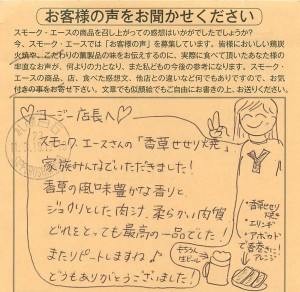 お客様の声をお聞かせください
スモーク・エースの商品を召し上がっての感想はいかがでしたでしょうか?
今、スモーク・エースでは「お客様の声」を募集しています。皆様においしい鶏炭
火焼や、こだわりの薫製品の味をお伝えするのに、実際に食べて頂いたあなた様の
率直なお声が、何よりの力となり、また私どもの今後の参考になります。スモーク・
エースの商品、店、食べた感想文、他店との違いなど何でもありですので、お気
付きの事をお寄せ下さい。文章でも似顔絵でもご自由にお書きの上、お送りください。
♡コージー店長へ♡
スモーク、エースさんの「香草せせり焼」
家族みんなでいただきました!
香草の風味豊かな香りと、
ジュワリとした肉汁、柔らかい肉質
どれをとっても最高の一品でした!
またリピートしますね♪
どうもありがとうございました!
・香草せせり
焼き
・エリンギ
・アボカド
で香巻きに
アレンジ
もちろん
生ビール